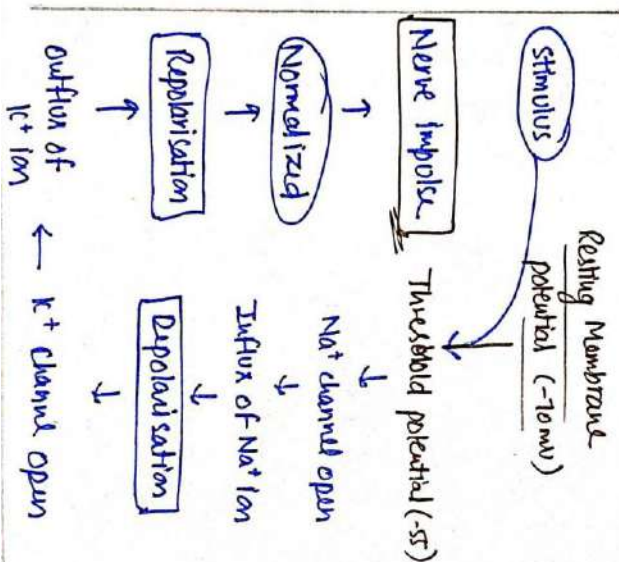 Resting Membrane
potential (-70mV)
stimulus
Threshold potential (-55)
↓
Na⁺ channel open
↓
Influx of Na⁺ Ion
↓
Depolarisation
↓
K⁺ channel open
←
outflux of
K⁺ ion
↑
Repolarisation
↑
Normalized
↑
Nerve impulse